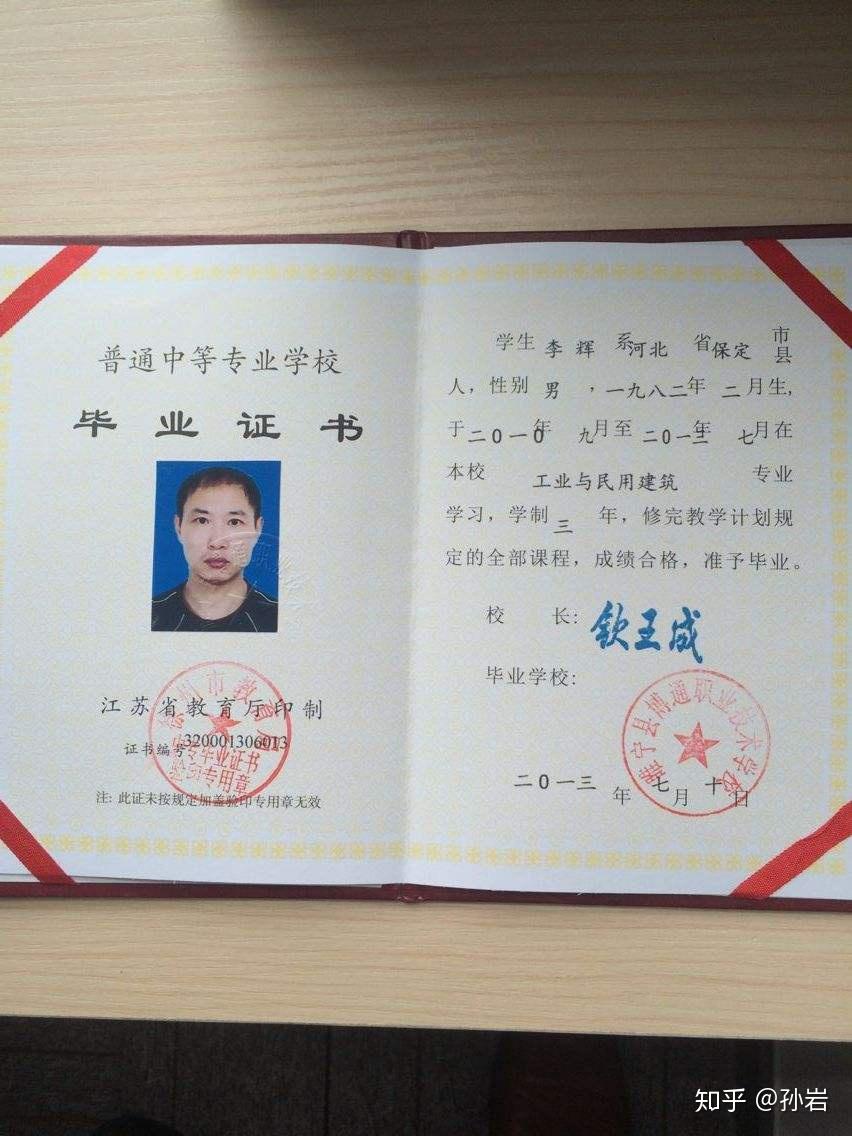 普通中等专业学校
毕业证书
江苏省教育厅印制
证书编号320001306013
注: 此证未按规定加盖验印专用章无效
市教育局
毕业证书
验印专用章
学生 李辉 系河北 省保定 市县
人，性别 男 ，一九八二年 二月生,
于二0一0年 九月至 二0一三年 七月在
本校 工业与民用建筑 专业
学习，学制 三 年，修完教学计划规
定的全部课程，成绩合格，准予毕业。
校 长: 钦玉成
毕业学校:
睢宁县博通职业技术学校
二0一三 年 七 月 十 日
知乎 @孙岩